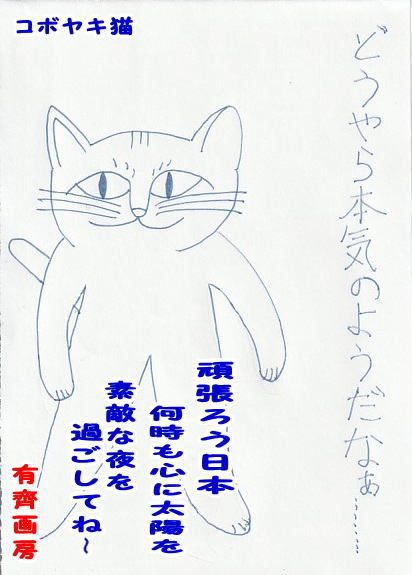 コボヤキ猫
どうやら本気のようだなぁ………
頑張ろう日本
何時も心に太陽を
素敵な夜を
過ごしてね~
有齊画房